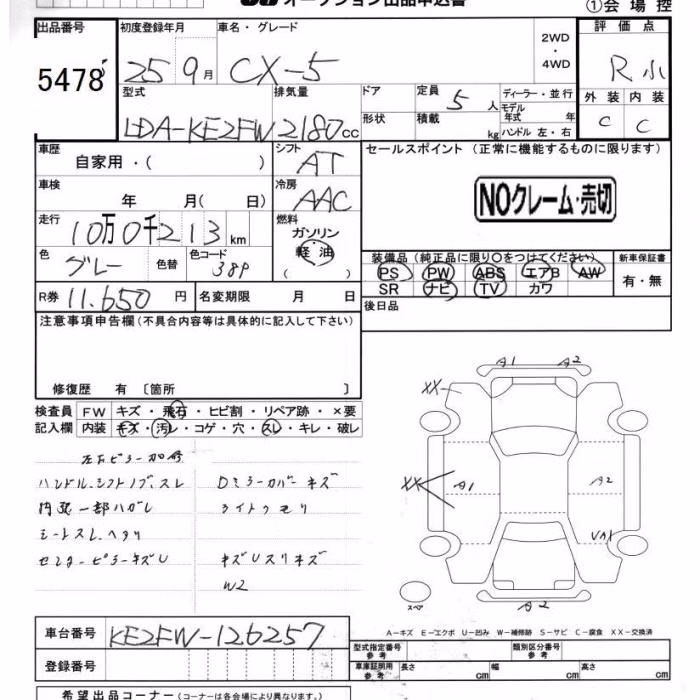 オークション出品申込書
①会場控
出品番号
5478
初度登録年月
25 9月
車名・グレード
CX-5
2WD
・
4WD
評価点
R小
外装 内装
C C
型式
LDA-KE2FW
排気量
2180cc
ドア
形状
定員
5人
積載
kg
ディーラー・並行
モデル
年式 年
ハンドル 左・右
車歴
自家用・( )
シフト
AT
車検
年 月( 日)
冷房
AAC
走行
10万0千213km
燃料
ガソリン
軽油
( )
色
グレー
色替
色コード
38P
R券 11.650円
名変期限 月 日
セールスポイント(正常に機能するものに限ります)
NOクレーム・売切
装備品(純正品に限り○をつけてください)
PS PW ABS エアB AW
SR ナビ TV カワ
新車保証書
有・無
後日品
注意事項申告欄(不具合内容等は具体的に記入して下さい)
修復歴 有〔箇所 〕
検査員
記入欄
FW キズ・飛石・ヒビ割・リペア跡・×要
内装 キズ・汚レ・コゲ・穴・スレ・キレ・破レ
ハンドル.シフトノブ.スレ
内装一部ハガレ
シートスレ.ヘタリ
センターピラーキズU
Dミラーカバーキズ
ライトクモリ
キズUスリキズ
W2
A1 A2
XX
XX A1 A2
VA1
スペア
A2
A-キズ E-エクボ U-凹み W-補修跡 S-サビ C-腐食 XX-交換済
車台番号
KE2FW-126257
登録番号
型式指定番号
参考
類別区分番号
参考
車庫証明用
参考
長さ cm
幅 cm
高さ cm
希望出品コーナー(コーナーは各会場により異なります。)